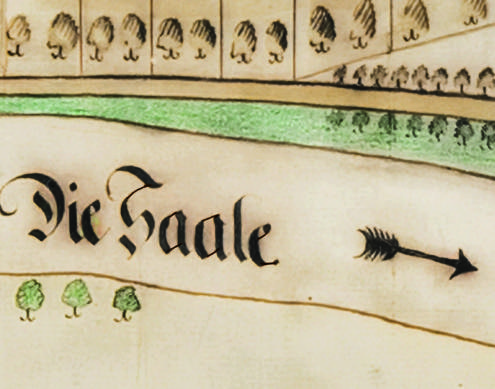 Die Saale